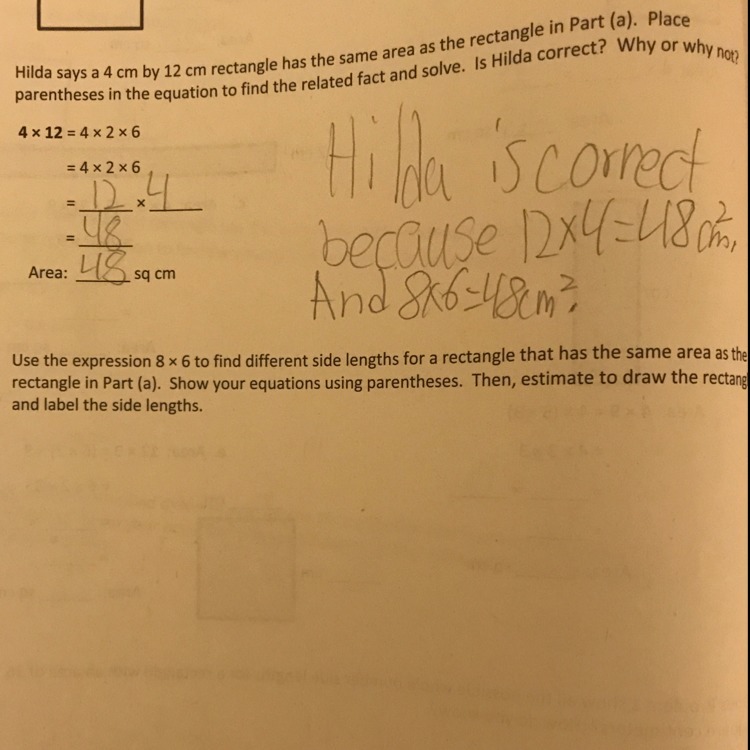 Hilda says a 4 cm by 12 cm rectangle has the same area as the rectangle in Part (a). Place
parentheses in the equation to find the related fact and solve. Is Hilda correct? Why or why not?
4 × 12 = 4 × 2 × 6
= 4 × 2 × 6
= 12 × 4
= 48
Area: 48 sq cm
Hilda is correct
because 12x4=48cm²,
And 8x6=48cm².
Use the expression 8 × 6 to find different side lengths for a rectangle that has the same area as the
rectangle in Part (a). Show your equations using parentheses. Then, estimate to draw the rectang
and label the side lengths.